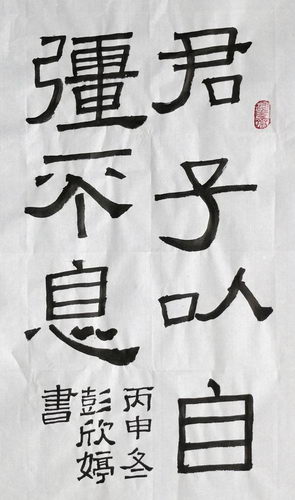 君子以自
彊不息
丙申冬
彭欣婷
書